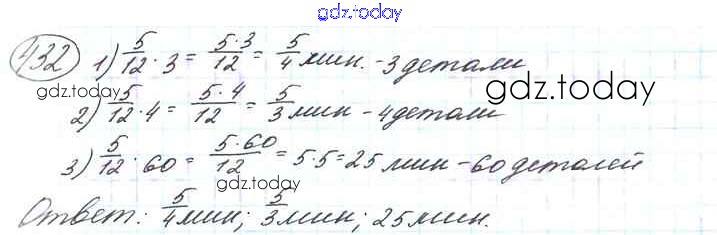 gdz.today
432 1) 5/12 · 3 = 5·3/12 = 5/4 мин. - 3 детали
gdz.today
gdz.today
2) 5/12 · 4 = 5·4/12 = 5/3 мин - 4 детали
3) 5/12 · 60 = 5·60/12 = 5·5 = 25 мин - 60 деталей
gdz.today
Ответ: 5/4 мин; 5/3 мин; 25 мин.